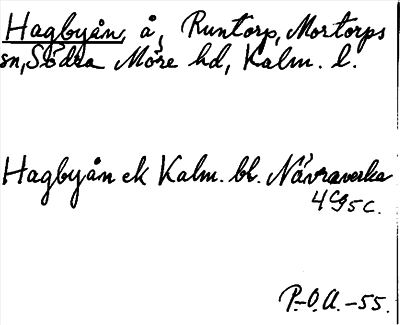 Hagbyån, å, Runtorp, Mortorps
sn, Södra Möre hd, Kalm. l.
Hagbyån ek Kalm. bl. Nävraverke
4 c g 5 c.
P.-O.A. -55.